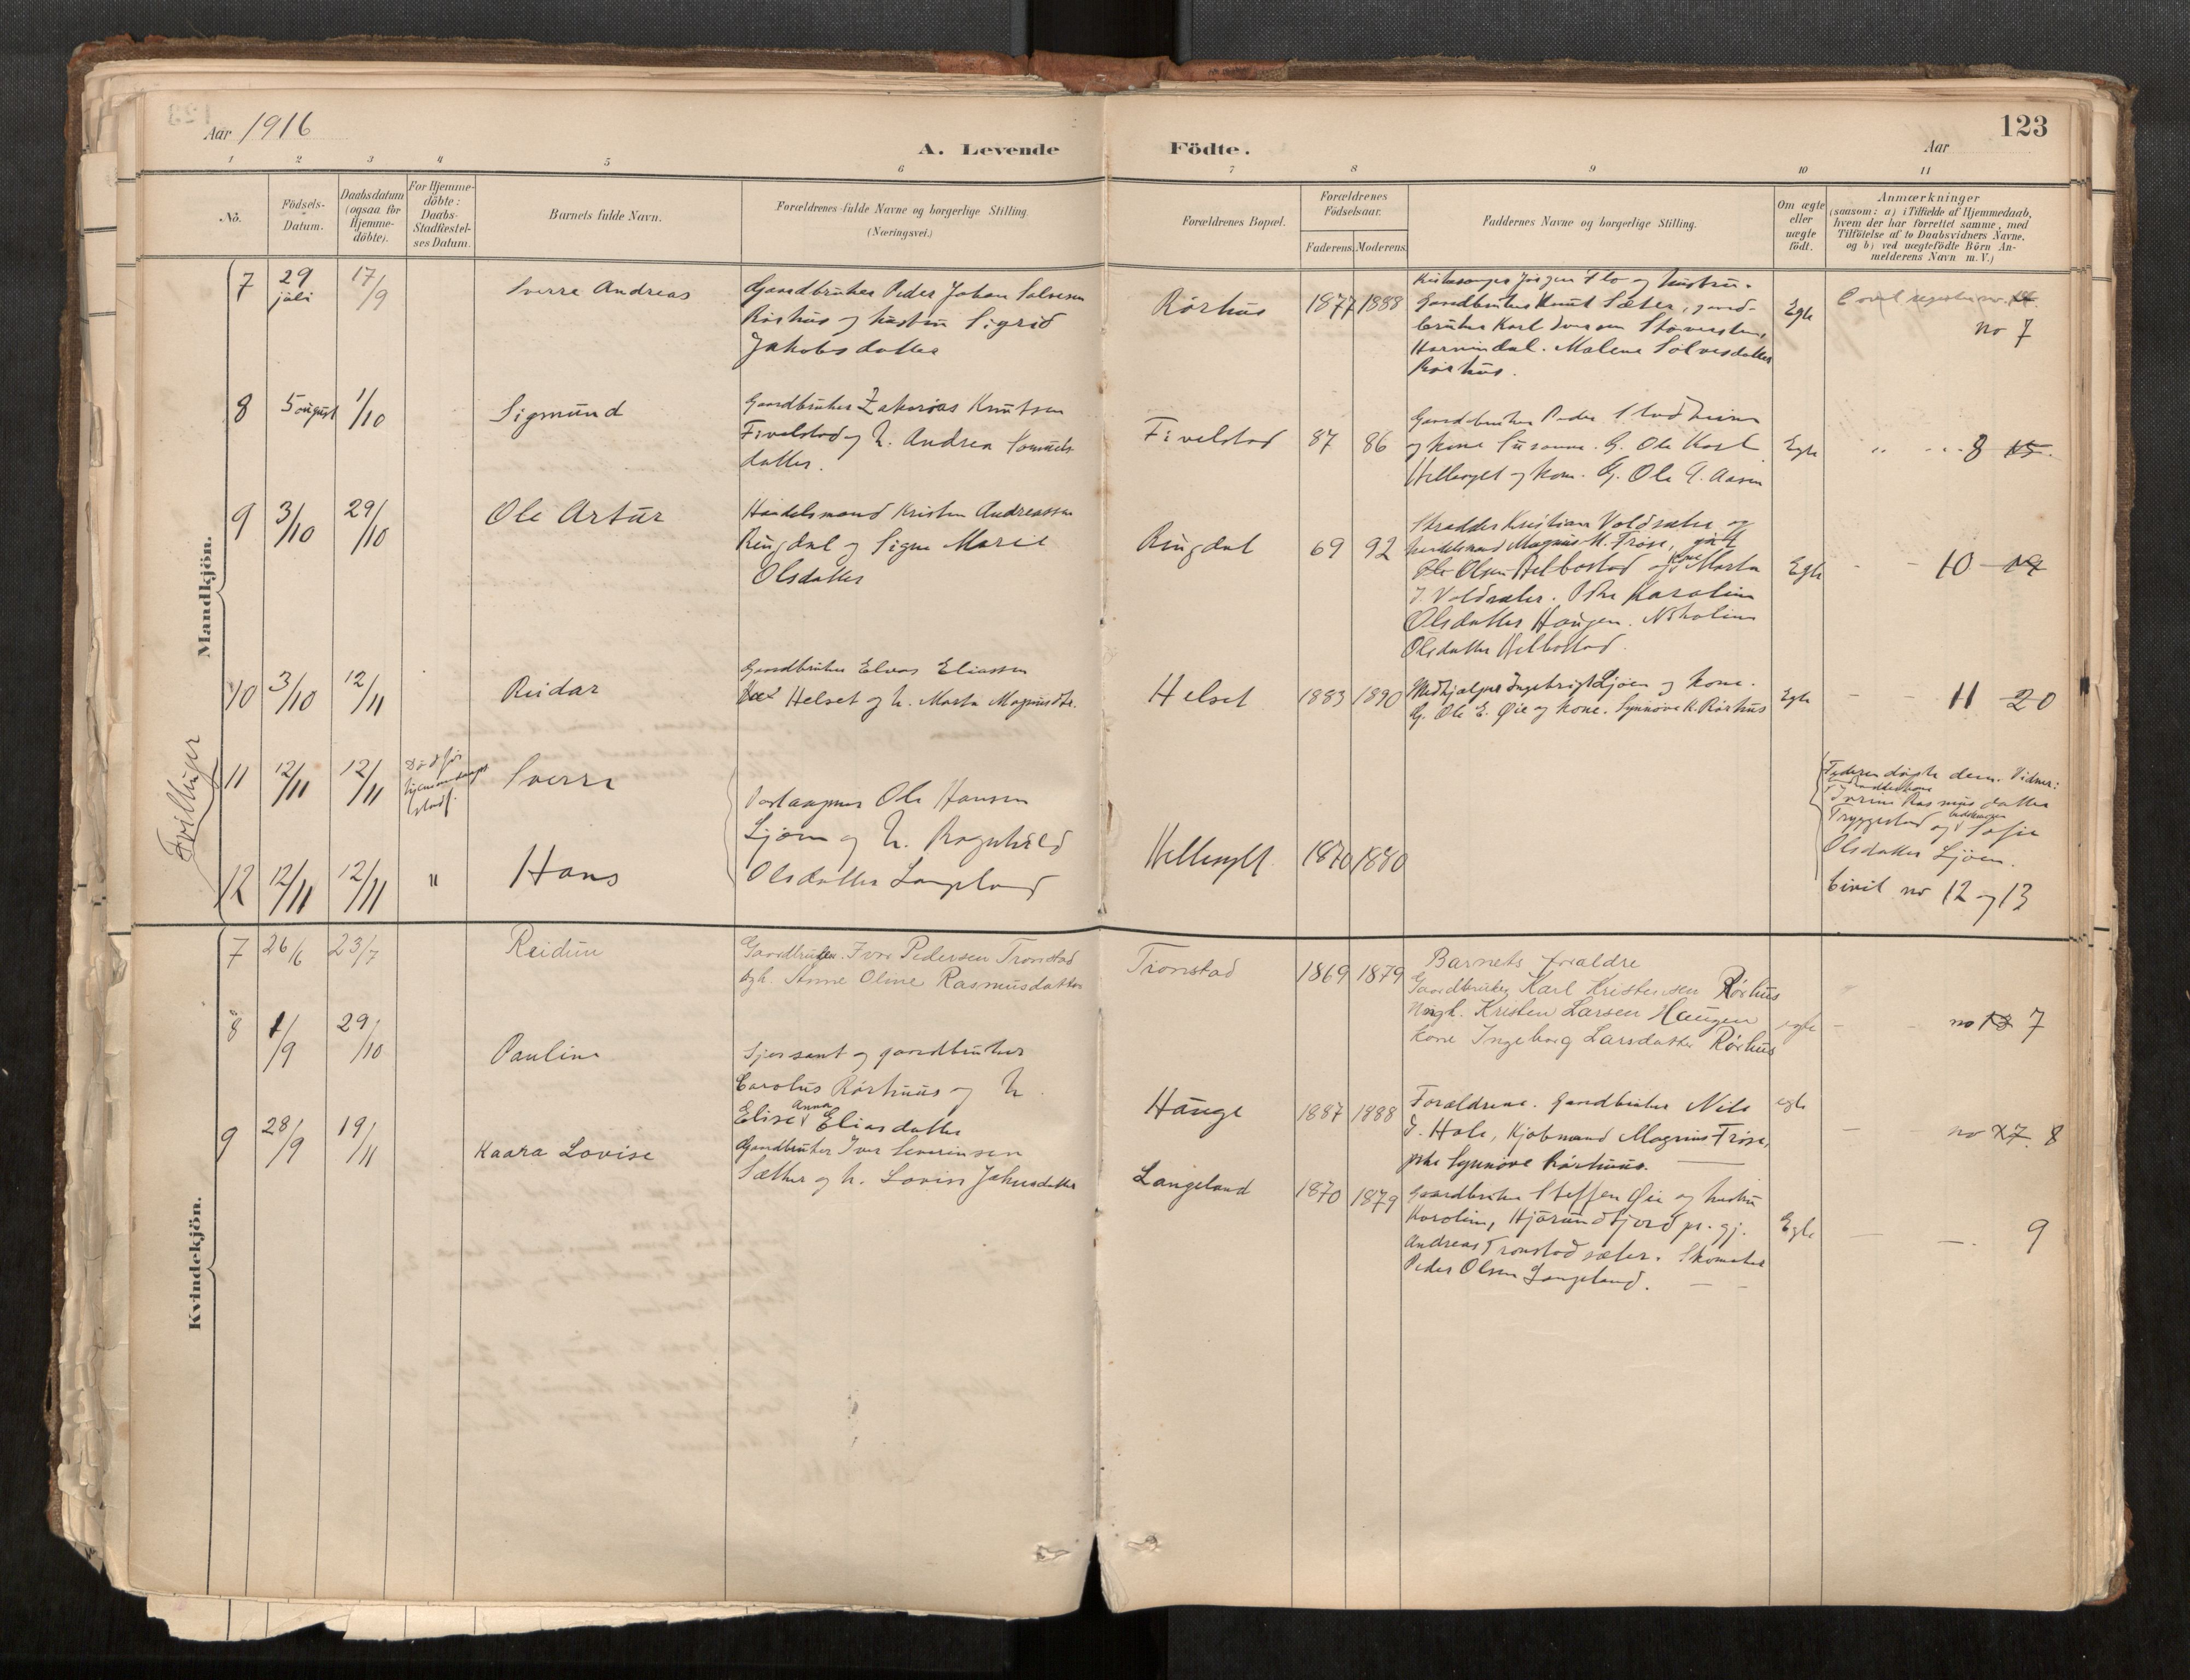 Aar 1916
A. Levende Födte.
123
Aar
1 2 3 4 5 6 7 8 9 10 11
Nô.
Födsels-Datum.
Daabsdatum (ogsaa for Hjemme-döbte).
For Hjemme-döbte: Daabs-Stadfæstel-ses Datum.
Barnets fulde Navn.
Forældrenes fulde Navne og borgerlige Stilling. (Næringsvei.)
Forældrenes Bopæl.
Forældrenes Födselsaar.
Faderens. Moderens.
Faddernes Navne og borgerlige Stilling.
Om ægte eller uægte födt.
Anmærkninger
(saasom: a) i Tilfælde af Hjemmedaab,
hvem der har forrettet samme, med
Tilföielse af to Daabsvidners Navne,
og b) ved uægtefödte Börn An-
melderens Navn m.V.)
Mandkjön.
7 29 juli 17/9 Sverre Andreas
Gaardbruker Peder Johan Salvesen
Rörhus og hustru Sigrid
Jakobsdatter
Rörhus 1877 1888
Kirkesanger Jörgen Flo og hustru.
Gaardbruker Knut Sæter, gaard-
bruker Karl Iversen
Hornindal. Malene Sölvesdatter
Rörhus.
Egte
no 7
8 5 august 1/10 Sigmund
Gaardbruker Zakarias Knutsen
Fivelstad og h. Andrea
datter.
Fivelstad 87 86
Gaardbruker Peder Stadheim
og kone Susanne. G. Ole Karl
Hellesylt og kone. G. Ole A. Aasen
Egte
" 8 15.
9 3/10 29/10 Ole Artur
Handelsmand Kristen Andreassen
Ringdal og Signe Marie
Olsdatter
Ringdal 69 92
Skrædder Kristian Voldsæter og
handelsmand Magnus M. Fröse, gift
Ole Olsen Helbostad og kone Marta
J. Voldsæter. Pike Karoline
Olsdatter Haugen. Nikoline
Olsdatter Helbostad.
Egte
10 19
10 3/10 12/11 Reidar
Gaardbruker Elias Eliassen
Helset og h. Marta Magnusdtr.
Helset 1883 1890
Medhjælper Ingebrigt Ljöen og kone.
G. Ole E. Öie og kone. Synnöve K. Rörhus
Egte
11 20
Tvillinger
11 12/11 12/11 Död för hjemmedaaps stadf. Sverre
12 12/11 12/11 " Hans
Postaapner Ole Hansen
Ljöen og h. Ragnhild
Olsdatter Langeland
Hellesylt 1870 1880
Faderen döpte dem. Vidner:
Rasmusdatter
Tryggestad og Sofie
Olsdatter Ljöen.
Civil no 12 og 13
Kvindekjön.
7 26/6 23/7 Reidun
Gaardbruker Iver Pedersen Tronstad
og h. Anne Oline Rasmusdatter
Tronstad 1869 1879
Barnets forældre
Gaardbruker Karl Kristensen Rörhus
Ungk. Kristen Larsen Haugen
Kone Ingeborg Larsdatter Rörhus
egte
no 13 7
8 1/9 29/10 Pauline
Sjersant og gaardbruker
Carolus Rörhuus og h.
Elise Anna Eliasdatter
Hauge 1887 1888
Forældrene. Gaardbruker Nils
J. Hole, Kjöbmand Magnus Fröse,
pike Synnöve Rörhuus.
egte
no 17. 8
9 28/9 19/11 Kaara Lovise
Gaardbruker Iver Severinsen
Sæther og h. Lovise Jakobsdatter
Langeland 1870 1879
Gaardbruker Steffen Öie og hustru
Karoline, Hjörundfjord pr. gj.
Andreas Tronstadsæter. Skomaker
Peder Olsen Langeland.
Egte
9